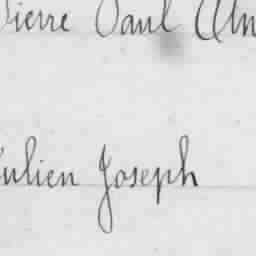 Pierre Paul
Julien Joseph